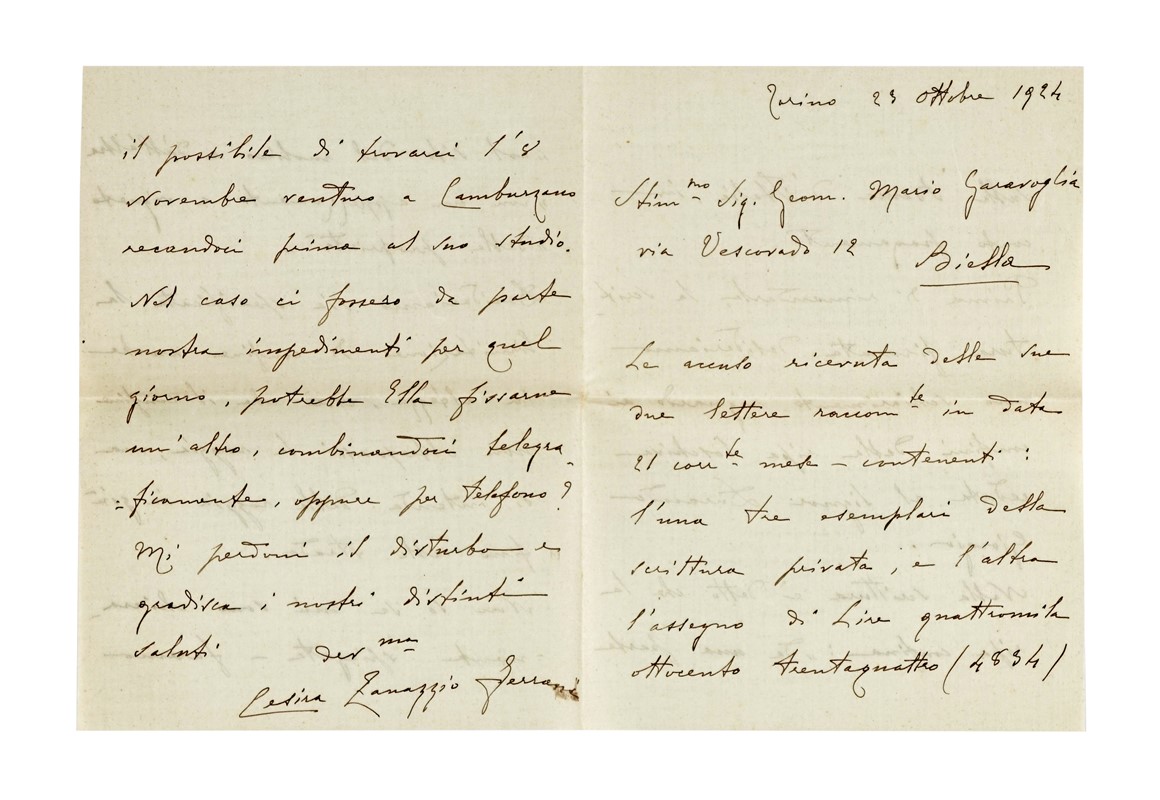 Torino 23 ottobre 1924
Stim.mo Sig. Geom. Mario Garavoglia
via Vescovado 12
Biella
Le accuso ricevuta delle sue
due lettere raccom.te in data
21 corr.te mese - contenenti :
l'una tre esemplari della
scrittura privata, e l'altra
l'assegno di Lire quattromila
ottocento trentaquattro (4834)
il possibile di trovarci l'8
Novembre venturo a Camburzano
recandoci prima al suo studio.
Nel caso ci fossero da parte
nostra impedimenti per quel
giorno, potrebbe Ella fissarne
un'altro, combinandoci telegra-
-ficamente, oppure per telefono?
Mi perdoni il disturbo e
gradisca i nostri distinti
saluti dev.ma
Cesira Zanazzio